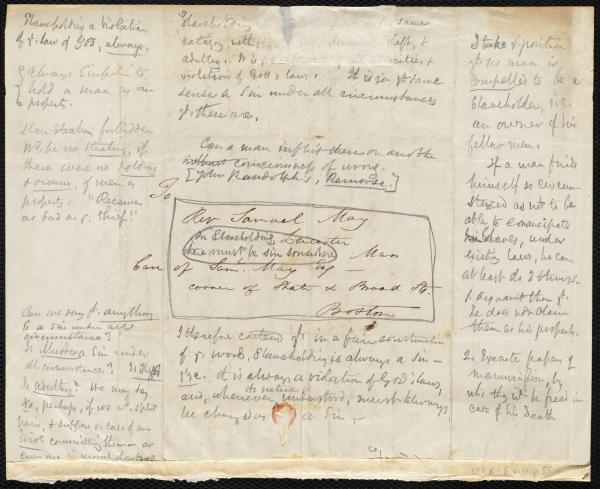 Slaveholding a violation
of ye. law of God, always.
always sinful to
hold a man as one's
property.
Man stealing forbidden
Wd. be no stealing, if
there were no holding
& owning, of men as
property. "Receiver
as bad as ye. thief"!
Can we say yt. anything
to a Sin under all
circumstances?
Is Murder a Sin under
all circumstances? Is Theft
Is adultery? We may say
No, perhaps, if we wd. split
hairs, & suppose a case of an
idiot committing them — or
even one in moral darkness
Slaveholding
same
category with Theft, &
adultery.
violation of God's laws. It is in ye. same
sense a Sin under all circumstances
yt. these are.
Can a man inflict there on another
without consciousness of wrong.
[John Randolph's, Remorse.]
To
Rev Samuel May
on Slaveholding, Leicester
there must be sin somewhere Mass
Care of Saml. May Esq —
corner of State & Broad St.
Boston
I therefore contend yt. in a fair construction
of ye. word, Slaveholding is always a sin —
i.e. it is always a violation of God's laws,
and, whenever its nature understood, must always
be charged as a Sin.
I take ye position
yt. no man is
compelled to be a
Slaveholder, i.e.
an owner of his
fellow men.
If a man finds
himself so circum-
stanced as not to be
able to emancipate
his slaves, under
existing laws, he can
at least do 2 things.
1. Acquaint them yt.
he does not claim
them as his property.
2. Execute papers of
manumission, by
wh. they wd. be freed in
case of his death